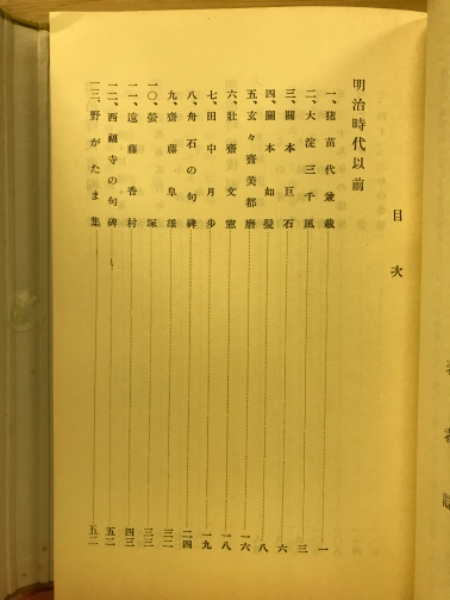 目次
明治時代以前
一、猪苗代兼載 一
二、大淀三千風 三
三、關本巨石 六
四、關本如髪 八
五、玄々齋美都磨 一六
六、壯齋文憲 一八
七、田中月步 一九
八、舟石の句碑 二四
九、齋藤阜雄 三二
一〇、螢塚 三三
一一、遠藤香村 四三
一二、西福寺の句碑 五二
一三、野がたま集 五二